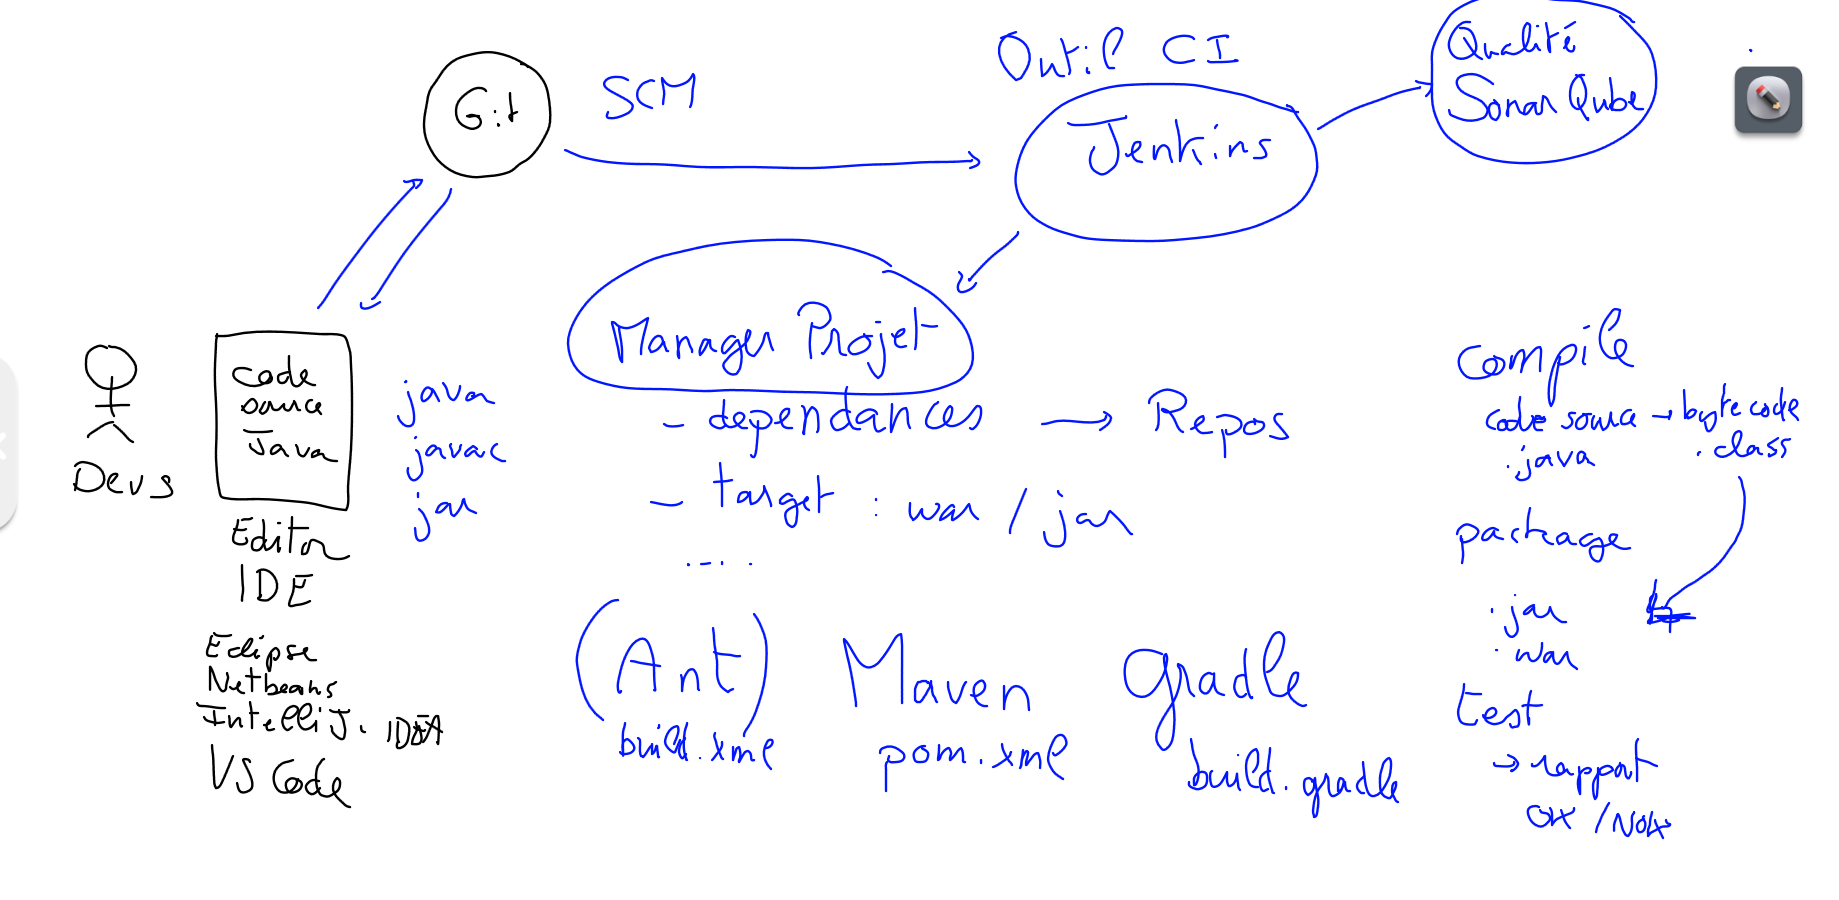 Git
SCM
Outil CI
Jenkins
Qualité
Sonar Qube
Devs
code
source
Java
Editor
IDE
Eclipse
Netbeans
IntelliJ. IDEA
VS Code
java
javac
jar
Manager Projet
- dependances → Repos
- target : war / jar
....
(Ant) Maven gradle
build.xml pom.xml build.gradle
compile
code source → bytecode
.java .class
package
.jar
.war
test
→ rapport
OK / NOK